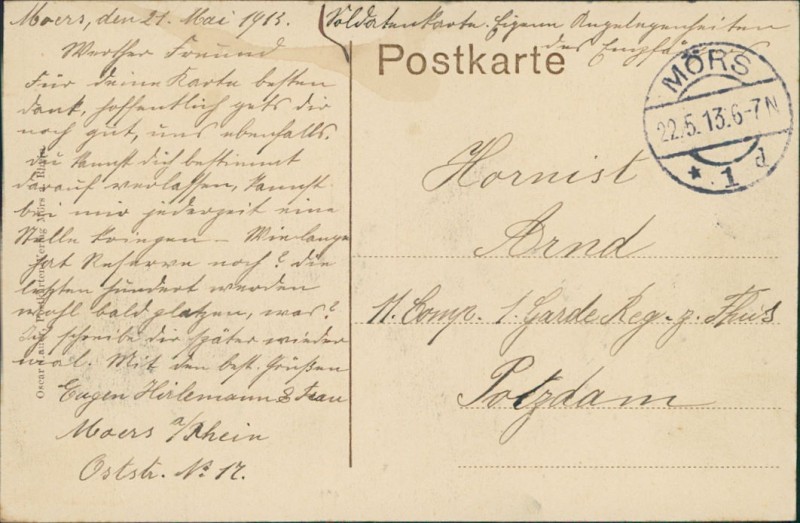 Moers, den 21. Mai 1913.
Werther Freund
Für deine Karte besten
dank, hoffentlich gets dir
noch gut, uns ebenfalls.
du kannst dich bestimmt
darauf verlassen, kannst
bei mir jederzeit eine
Stelle kriegen – Wie lange
hat Reserve noch? die
letzten hundert werden
wohl bald platzen, was?
Ich schreibe dir später wieder
mal. Mit den best. Grüßen
Eugen Hirlemann & Frau
Moers a/Rhein
Oststr. No 17.
Soldatenkarte. Eigene Angelegenheiten
des Empfängers
Postkarte
MÖRS
22.5.13.6-7N
* 1 d
Hornist
Arnd
11. Comp. 1. Garde Reg. z. Fhus
Potzdam
Oscar
Verlag Mörs